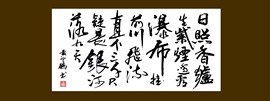 日照香爐
生紫煙遙看
瀑布挂
前川飛流
直下三千尺
疑是銀河
落九天
書